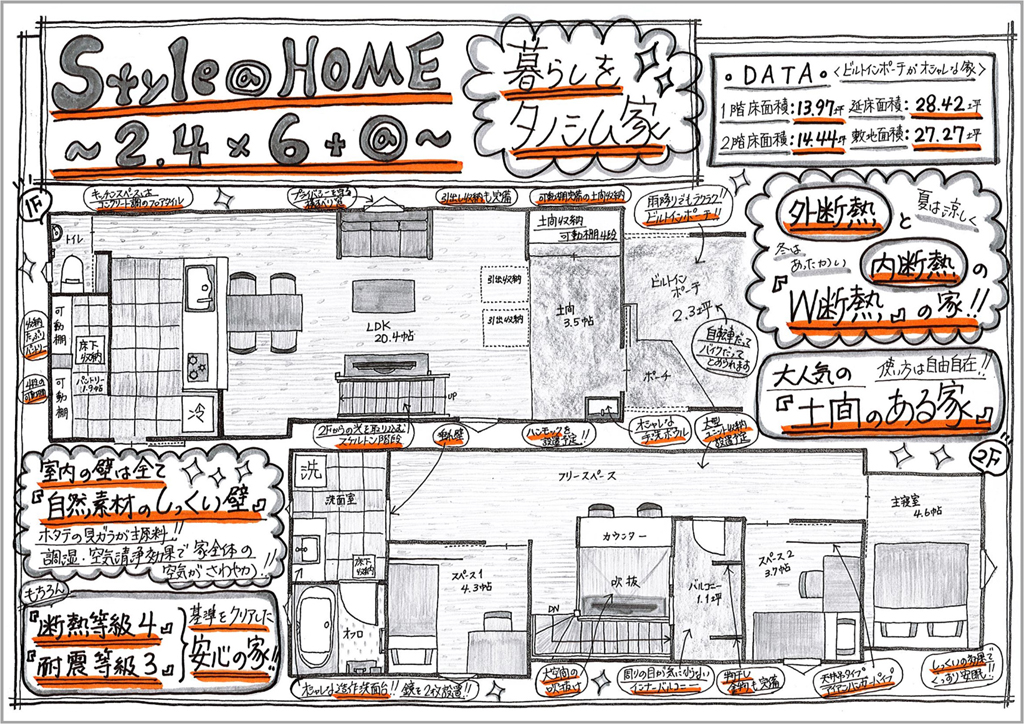 Style@HOME
～2.4×6+@～
暮らしを
タノシム家
・DATA・<ビルトインポーチがオシャレな家>
1階床面積:13.97坪 延床面積:28.42坪
2階床面積:14.44坪 敷地面積:27.27坪
1F
キッチンスペースは
コンクリート調のフロアタイル
プライバシーを守る
引出し収納も完備
可動棚完備の土間収納
雨降りでもラクラク!
ビルトインポーチ!!
トイレ
土間収納
可動棚4段
ビルトイン
ポーチ
2.3坪
引出収納
引出収納
土間
3.5帖
LDK
20.4帖
収納
たっぷり
パントリー
可動棚
床下
収納
パントリー
1.9帖
可動棚
4段の
可動棚
冷
UP
自転車だって
バイクだって
とめられます
ポーチ
外断熱
と
夏は涼しく
冬は
あったかい
内断熱
の
『W断熱』の家!!
大人気の 使い方は自由自在!!
『土間のある家』
2Fからの光を取り込む
スケルトン階段
ハンモックを
設置予定!!
オシャレな
手洗ボウル
大型
収納
設置予定
2F
室内の壁は全て
『自然素材のしっくい壁』
ホタテの貝ガラが主原料!!
調湿・空気清浄効果で家全体の
空気がさわやか!!
もちろん
『断熱等級4』
『耐震等級3』
基準をクリアした
安心の家!!
洗
洗面室
フリースペース
主寝室
4.6帖
カウンター
吹抜
床下
収納
スペース1
4.3帖
バルコニー
1.1坪
スペース2
3.7帖
オフロ
DN
オシャレな造作洗面台!! 鏡を2枚設置!!
大空間の
吹き抜け
周りの目が気にならない
インナーバルコニー
物干し
金物も完備
天吊りタイプ
アイアンハンガーパイプ
しっくいの効果で
ぐっすり安眠!!